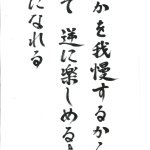 かを我慢するから
て 逆に楽しめる
になれる